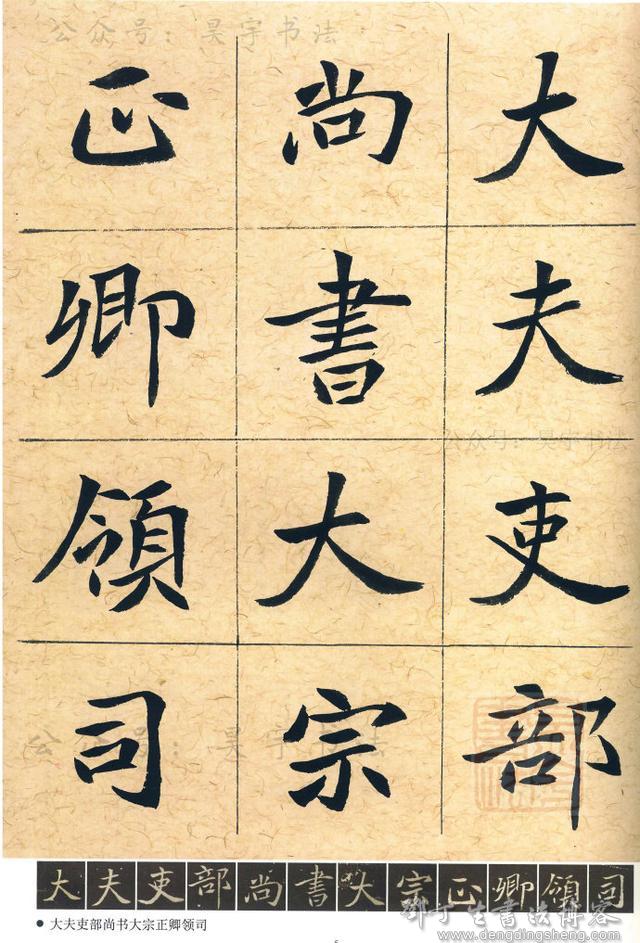 公众号：昊宇书法
大夫吏部
尚書大宗
正卿領司
公众号：昊宇书法
公众号：昊宇书法
大夫吏部尚書大宗正卿領司
● 大夫吏部尚书大宗正卿领司
邓丁生书法博客
www.dengdingsheng.com